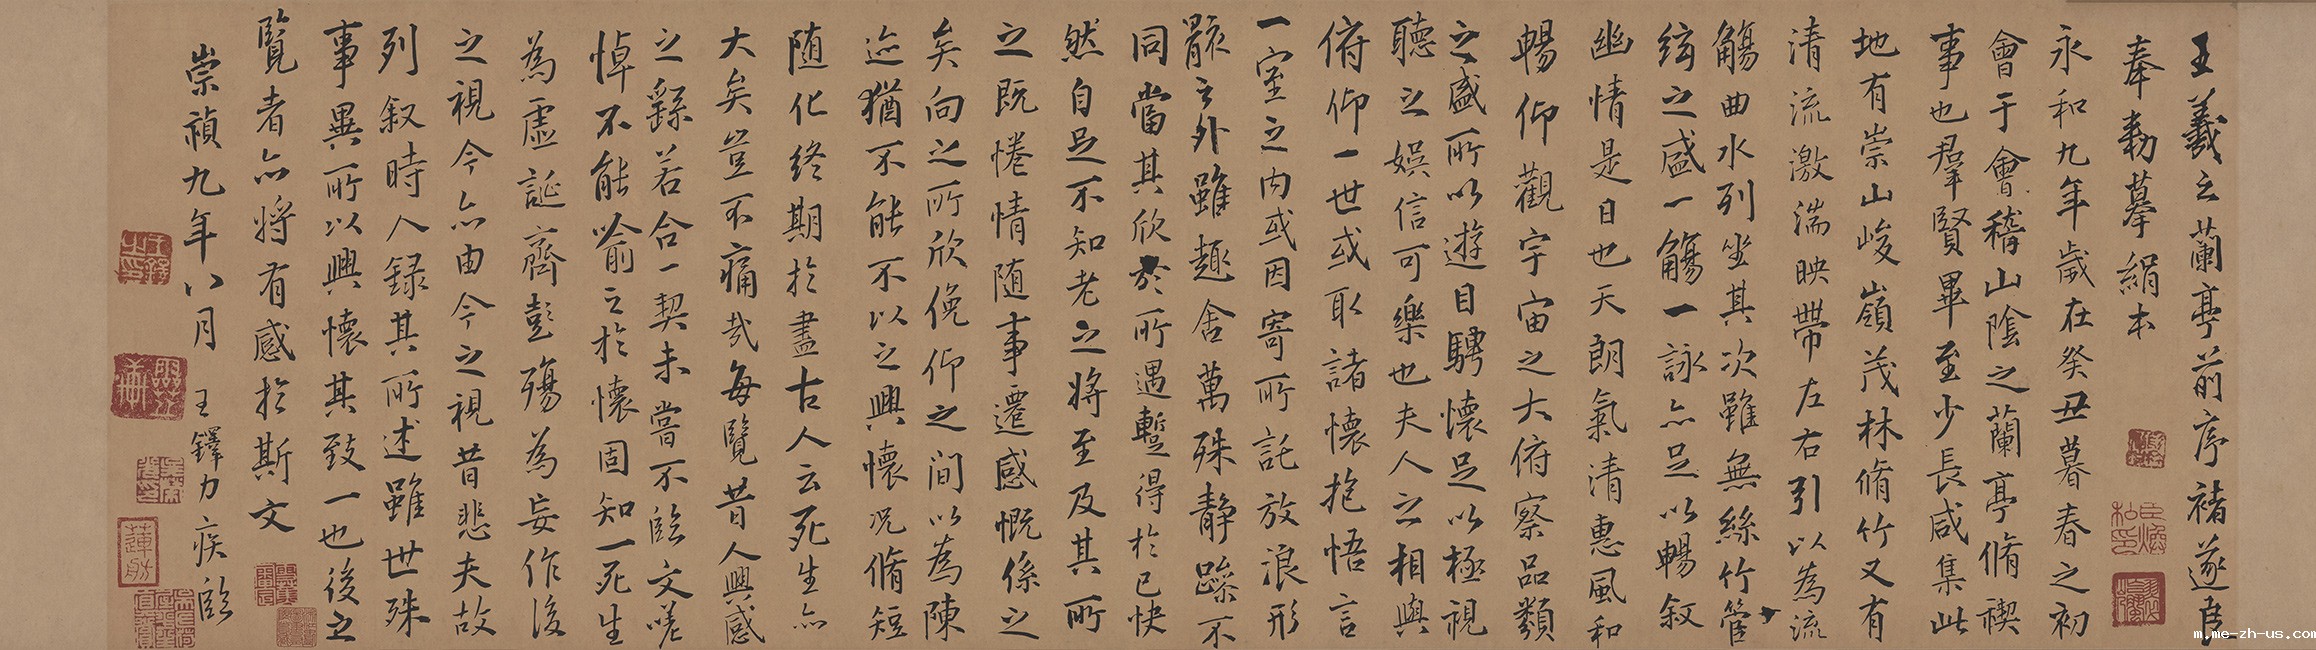 王羲之蘭亭前序褚遂良
奉勅摹絹本
永和九年歲在癸丑暮春之初
會于會稽山陰之蘭亭脩禊
事也羣賢畢至少長咸集此
地有崇山峻嶺茂林脩竹又有
清流激湍映帶左右引以為流
觴曲水列坐其次雖無絲竹管
絃之盛一觴一詠亦足以暢叙
幽情是日也天朗氣清惠風和
暢仰觀宇宙之大俯察品類
之盛所以遊目騁懷足以極視
聽之娛信可樂也夫人之相與
俯仰一世或取諸懷抱悟言
一室之内或因寄所託放浪形
骸之外雖趣舍萬殊静躁不
同當其欣於所遇蹔得於己快
然自足不知老之將至及其所
之既惓情随事遷感慨係之
矣向之所欣俛仰之間以為陳
迹猶不能不以之興懷况脩短
随化終期於盡古人云死生亦
大矣豈不痛哉每覽昔人興感
之繇若合一契未嘗不臨文嗟
悼不能喻之於懷固知一死生
為虛誕齊彭殤為妄作後
之視今亦由今之視昔悲夫故
列叙時人録其所述雖世殊
事異所以興懷其致一也後之
覽者亦將有感於斯文
崇禎九年八月 王鐸力疾臨
王鐸之印
蓮舫
m.me-zh-us.com